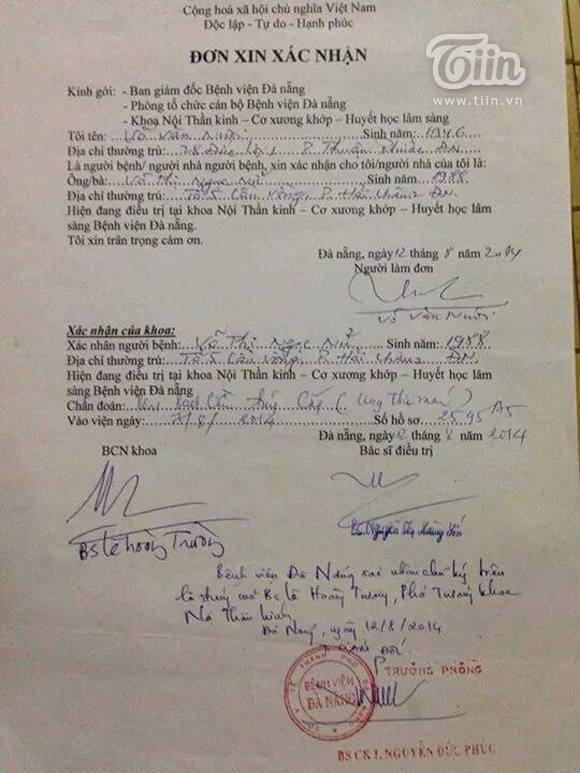 Cộng hoà xã hội chủ nghĩa Việt Nam
Độc lập - Tự do - Hạnh phúc
Tiin
www.tiin.vn
ĐƠN XIN XÁC NHẬN
Kính gởi: - Ban giám đốc Bệnh viện Đà nẵng
- Phòng tổ chức cán bộ Bệnh viện Đà nẵng
- Khoa Nội Thần kinh – Cơ xương khớp – Huyết học lâm sàng
Tôi tên: Võ Văn Nuôi Sinh năm: 1946
Địa chỉ thường trú: P. Thuận Phước ĐN
Là người bệnh/ người nhà người bệnh, xin xác nhận cho tôi/người nhà của tôi là:
Ông/bà: Võ Thị Ngọc Nữ Sinh năm 1988
Địa chỉ thường trú: Tổ 5 Cầu Vồng, P. Hải Châu ĐN.
Hiện đang điều trị tại khoa Nội Thần kinh – Cơ xương khớp – Huyết học lâm
sàng Bệnh viện Đà nẵng.
Tôi xin trân trọng cảm ơn.
Đà nẵng, ngày 12 tháng 8 năm 2014
Người làm đơn
Võ Văn Nuôi
Xác nhận của khoa:
Xác nhận người bệnh: Võ Thị Ngọc Nữ Sinh năm: 1988
Địa chỉ thường trú: Tổ 5 Cầu Vồng P. Hải Châu ĐN.
Hiện đang điều trị tại khoa Nội Thần kinh – Cơ xương khớp – Huyết học lâm
sàng Bệnh viện Đà nẵng
Chẩn đoán: cấp (Ung thư máu)
Vào viện ngày: /8/2014 Số hồ sơ 2595 A5
Đà nẵng, ngày 12 tháng 8 năm 2014
BCN khoa Bác sĩ điều trị
BS Lê Hoàng Trường BS. Nguyễn Thị Hoàng Yến
Bệnh viện Đà Nẵng xác nhận chữ ký trên
là đúng của Bs Lê Hoàng Trường, Phó Trưởng khoa
Nội Thần kinh
Đà Nẵng, ngày 12/8/2014
Giám Đốc
TRƯỞNG PHÒNG
BỆNH VIỆN
ĐÀ NẴNG
BS CK I. NGUYỄN ĐỨC PHÚC